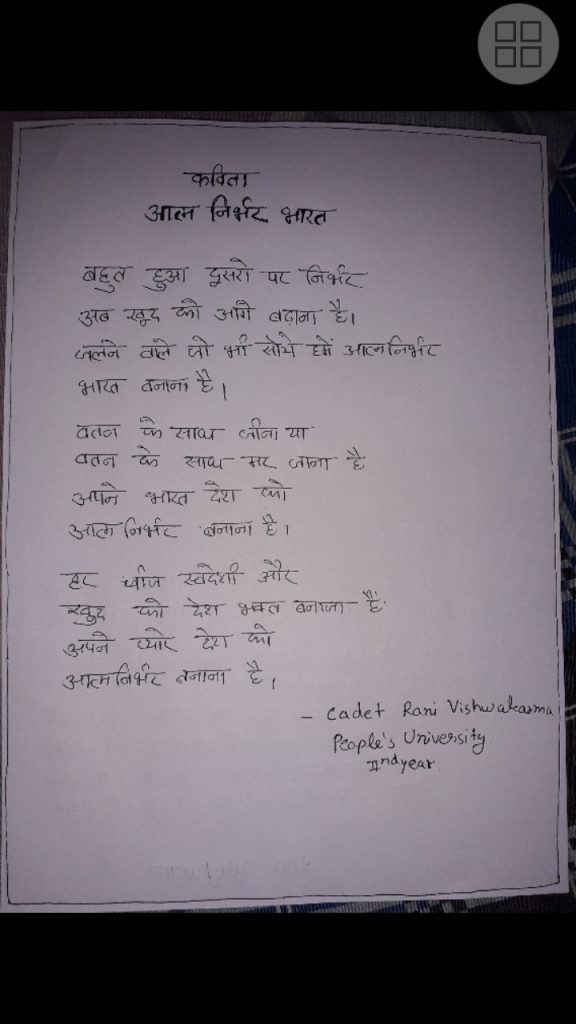 कविता
आत्म निर्भर भारत
बहुत हुआ दूसरो पर निर्भर
अब खूद को आगे बढ़ाना है।
जलने वाले जो भी सोचे हमें आत्मनिर्भर
भारत बनाना है।
वतन के साथ जीना या
वतन के साथ मर जाना है
अपने भारत देश को
आत्मनिर्भर बनाना है।
हर चीज स्वदेशी और
खुद को देश भक्त बनाना है
अपने प्यारे देश को
आत्मनिर्भर बनाना है।
- Cadet Rani Vishwakarma
People's University
IInd year.